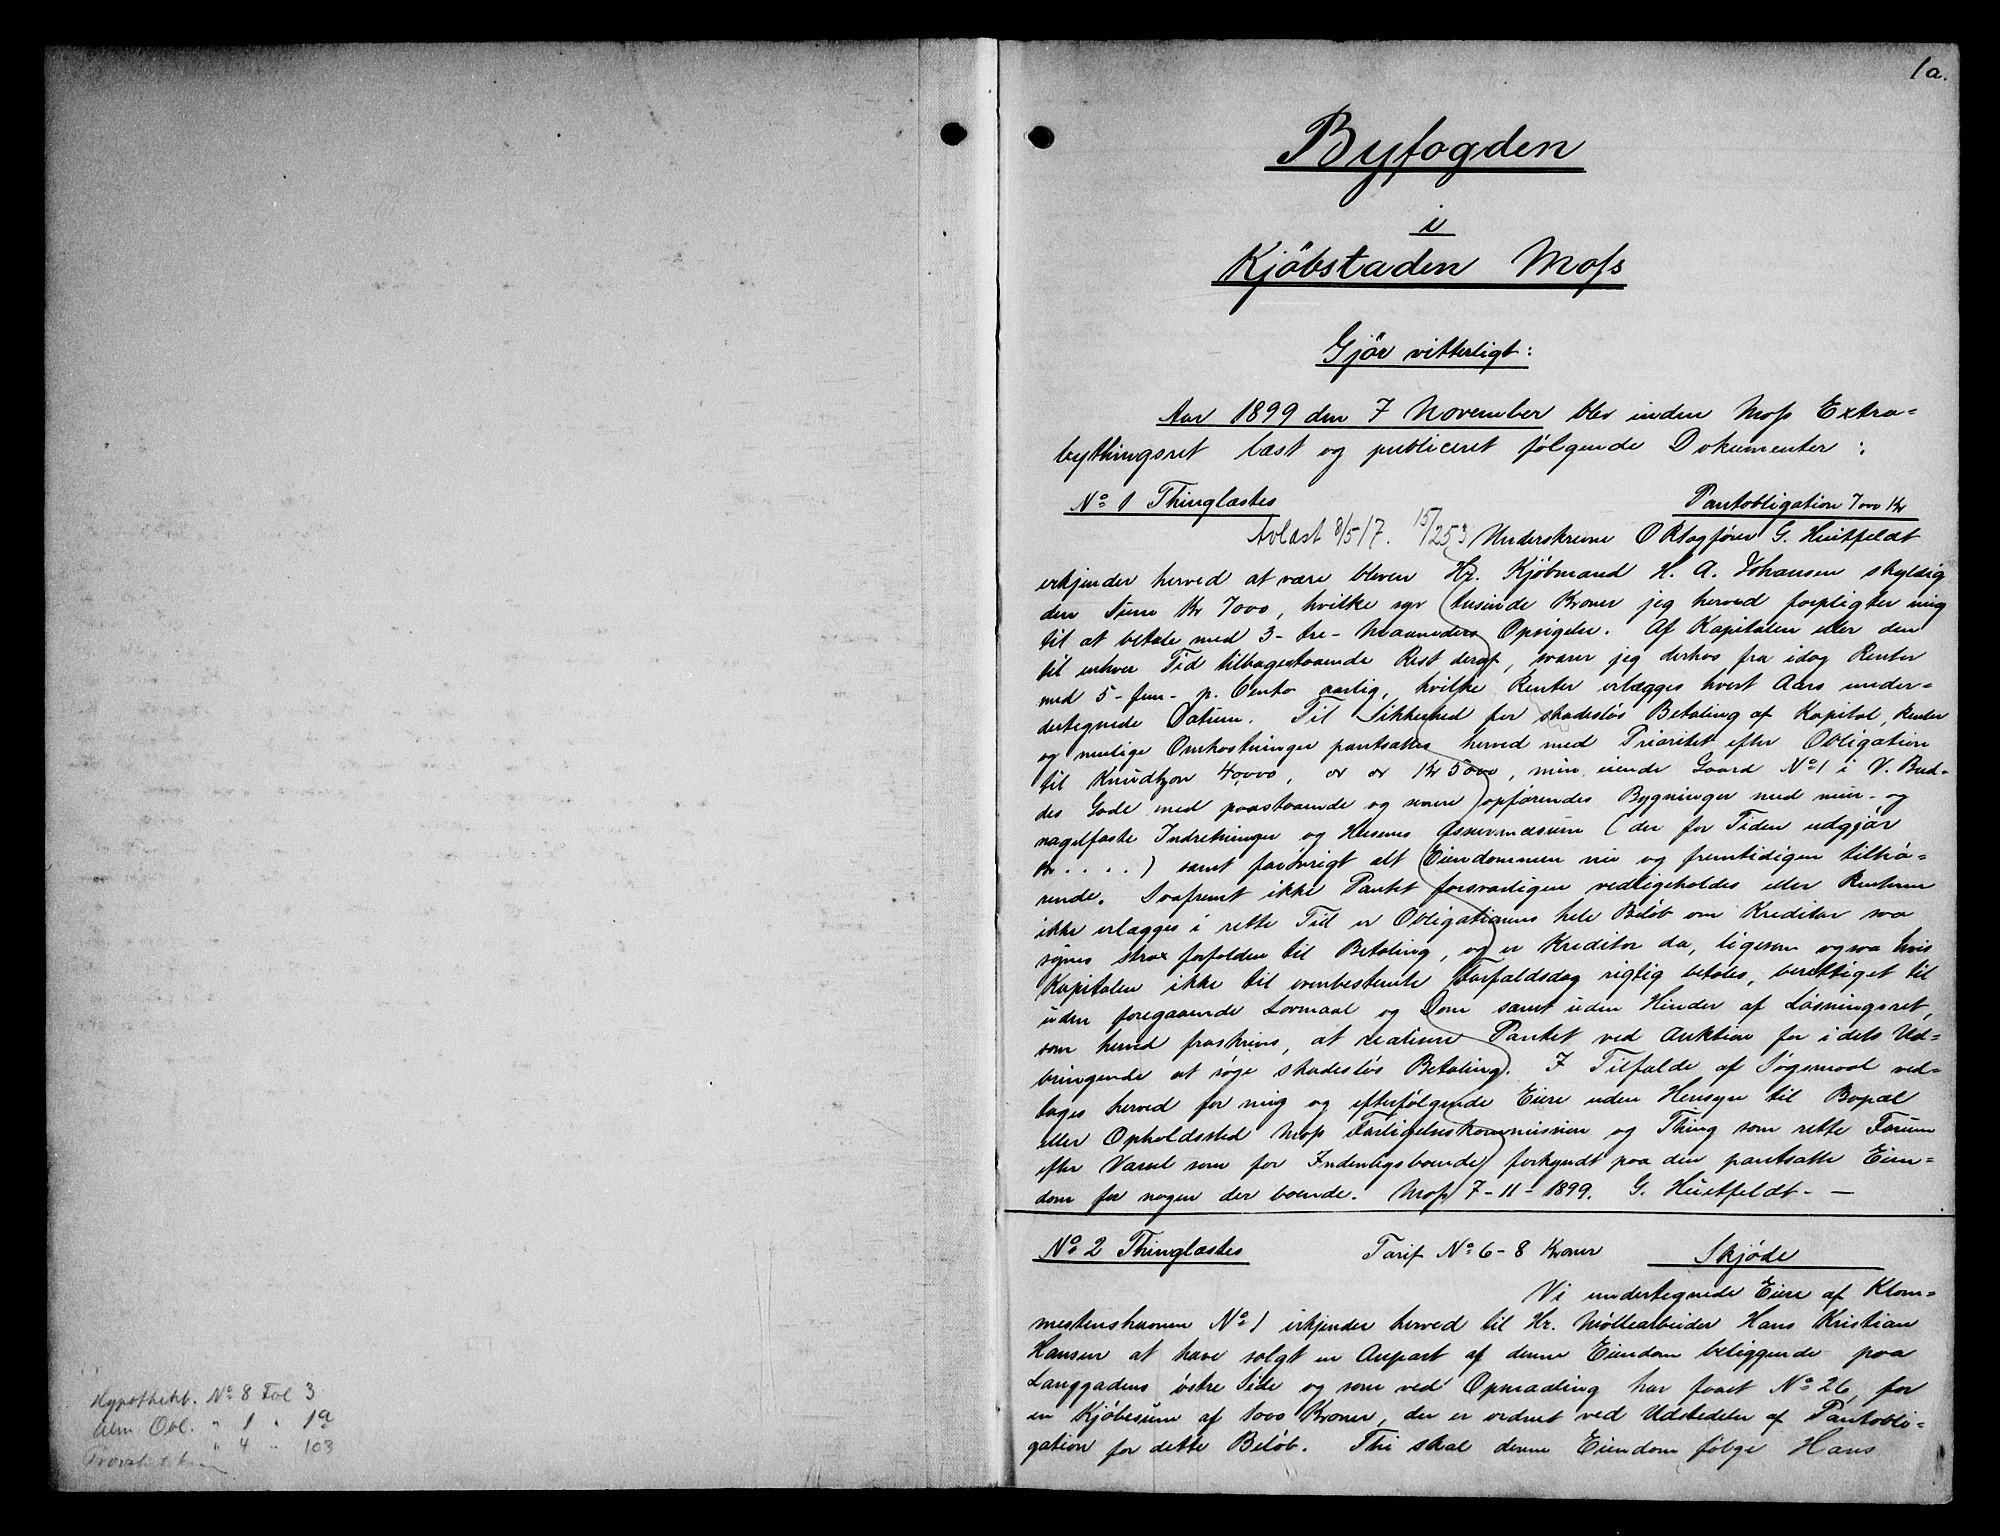 Hypothekb. No 8 Fol 3
Alm. Obl. " 1 " 1a
" 4 " 103
1a.
Byfogden
i
Kjöbstaden Moss
Gjör vitterligt:
Aar 1899 den 7 November blev inden Moss Extra=
bythingsret læst og publiceret følgende Dokumenter:
No 1 Thinglæstes Pantobligation 7000 Kr
Avlæst 8/5 17. 15/253 Underskrevne O Rtsagfører G. Huitfeldt
erkjender herved at være bleven Hr. Kjøbmand H. A. Johansen skyldig
den Sum Kr 7000, hvilke syv tusinde Kroner jeg herved forpligter mig
til at betale med 3- tre- Maaneders Opsigelse. Af Kapitalen eller den
til enhver Tid tilbagestaaende Rest deraf, svarer jeg derhos fra idag Renter
med 5- fem- p. Cento aarlig, hvilke Renter erlægges hvert Aars under=
dertegnede Datum. Til Sikkerhed for skadesløs Betaling af Kapital, Renter
og mulige Omkostninger pantsættes herved med Prioritet efter Obligation
til Knudtzon 40000, Kr 5000, min eiende Gaard No 1 i V. Bud=
des Gade med paastaaende og senere opførendes Bygninger med mur- og
nagelfaste Indretninger og Husenes Assurancesum (der for Tiden udgjør
Kr. . . . .) samt forøvrigt alt Eiendommen nu og fremtidigen tilhø=
rende. Saafremt ikke Pantet forsvarligen vedligeholdes eller Renterne
ikke erlægges i rette Tid er Obligationens hele Beløb om Kreditor saa
synes strax forfalden til Betaling, og er Kreditor da, ligesom ogsaa hvis
Kapitalen ikke til ovenbestemte Forfaldsdag rigtig betales, berettiget til
uden foregaaende Lovmaal og Dom samt uden Hinder af Løsningsret,
som herved fraskrives, at realisere Pantet ved Auktion for i dets Ud=
bringende at søge skadesløs Betaling. I Tilfælde af Søgsmaal ved=
tages herved for mig og efterfølgende Eiere uden Hensyn til Bopæl
eller Opholdssted Moss Forligelseskommission og Thing som rette Forum
efter Varsel som for Indenbysboende forkyndt paa den pantsatte Eien=
dom for nogen der boende. Moss 7-11-1899. G. Huitfeldt. —
No 2 Thinglæstes Tarif No 6-8 Kroner Skjøde
Vi undertegnede Eiere af Klom=
mestenshavnen No 1 erkjender herved til Hr. Møllearbeider Hans Kristian
Hansen at have solgt en Anpart af denne Eiendom beliggende paa
Langgadens østre Side og som ved Opmaaling har faaet No 26, for
en Kjøbesum af 1000 Kroner, der er ordnet ved Udstedelse af Pantobli=
gation for dette Beløb. Thi skal denne Eiendom følge Hans